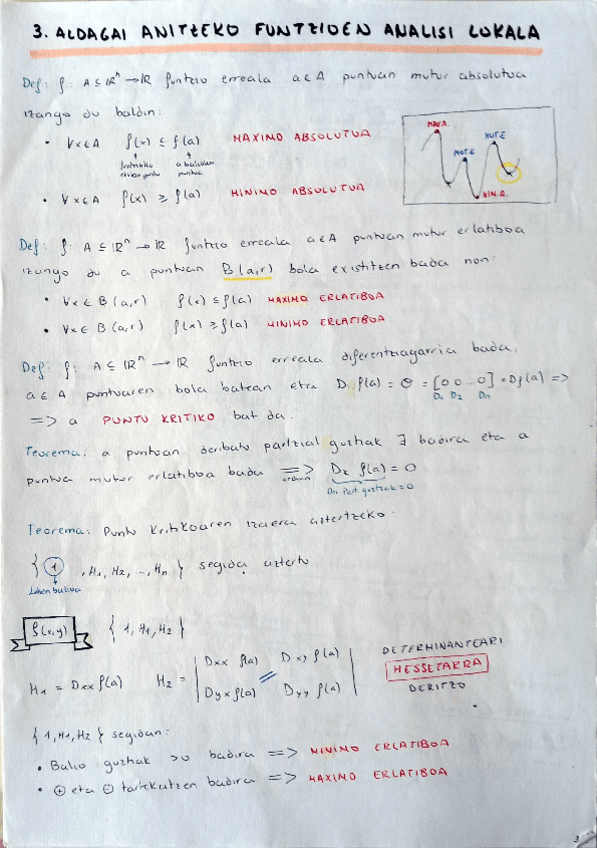 3. ALDAGAI ANITZEKO FUNTZIOEN ANALISI LOKALA
Def: f: A ⊆ ℝⁿ → ℝ funtzio erreala a∈A puntuan mutur absolutua
izango du baldin:
• ∀x∈A f(x) ≤ f(a) MAXIMO ABSOLUTUA
funtzioko
a balioan
puntua
• ∀x∈A f(x) ≥ f(a) MINIMO ABSOLUTUA
MAX.A.
MUT.E
MUT.E
MIN.A.
Def: f: A ⊆ ℝⁿ → ℝ funtzio erreala a∈A puntuan mutur erlatiboa
izango du a puntuan B(a,r) bola existitzen bada non:
• ∀x∈B(a,r) f(x) ≤ f(a) MAXIMO ERLATIBOA
• ∀x∈B(a,r) f(x) ≥ f(a) MINIMO ERLATIBOA
Def: f: A ⊆ ℝⁿ → ℝ funtzio erreala diferentziagarria bada,
a∈A puntuaren bola batean eta D f(a) = 0 = [0 0 ... 0] = Df(a) =>
D₁ D₂ Dn
=> a PUNTU KRITIKO bat da.
Teorema: a puntuan deribatu partzial guztiak ∃ badira eta a
puntua mutur erlatiboa bada => Dk f(a) = 0
orduan
Der. Part. guztiak = 0
Teorema: Puntu kritikoaren izaera aztertzeko:
{ 1, H₁, H₂, ..., Hn } segida aztertu
Lehen balioa
f(x,y) { 1, H₁, H₂ }
H₁ = Dxx f(a) H₂ = | Dxx f(a) Dxy f(a) |
| Dyx f(a) Dyy f(a) |
DETERMINANTEARI
HESSETARRA
DERITZO
{ 1, H₁, H₂ } segidan:
• Balio guztiak >0 badira => MINIMO ERLATIBOA
• ⊕ eta ⊖ tartekatzen badira => MAXIMO ERLATIBOA
3